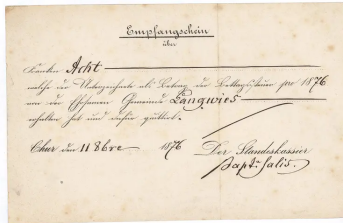 Empfangschein
über
Franken Acht
welche der Unterzeichnete als Betrag der Bettagssteuer pro 1876
von der Ehrsamen Gemeinde Langwies
erhalten hat und dafür quittirt.
Chur den 11 8bre 1876 Der Standeskassier
Bapt. Salis.